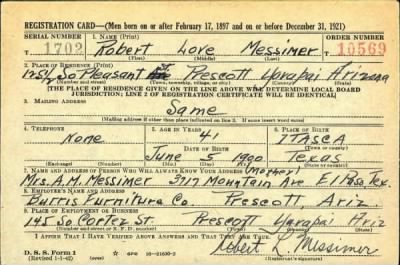 REGISTRATION CARD—(Men born on or after February 17, 1897 and on or before December 31, 1921)
SERIAL NUMBER 1. NAME (Print) ORDER NUMBER
T 1702 Robert Love Messimer T 10569
(First) (Middle) (Last)
2. PLACE OF RESIDENCE (Print)
125½ So Pleasant St Prescott Yavapai Arizona
(Number and street) (Town, township, village, or city) (County) (State)
[THE PLACE OF RESIDENCE GIVEN ON THE LINE ABOVE WILL DETERMINE LOCAL BOARD
JURISDICTION; LINE 2 OF REGISTRATION CERTIFICATE WILL BE IDENTICAL]
3. MAILING ADDRESS
Same
[Mailing address if other than place indicated on line 2. If same insert word same]
4. TELEPHONE 5. AGE IN YEARS 6. PLACE OF BIRTH
None 41 ITASCA
DATE OF BIRTH (Town or county)
June 5 1900 Texas
(Exchange) (Number) (Mo.) (Day) (Yr.) (State or country)
7. NAME AND ADDRESS OF PERSON WHO WILL ALWAYS KNOW YOUR ADDRESS (Mother)
Mrs. A.M. Messimer 3717 Mountain Ave El Paso, Tex.
8. EMPLOYER'S NAME AND ADDRESS
Burris Furniture Co. Prescott, Ariz
9. PLACE OF EMPLOYMENT OR BUSINESS
145 So Cortez St. Prescott Yavapai Ariz
(Number and street or R. F. D. number) (Town) (County) (State)
I AFFIRM THAT I HAVE VERIFIED ABOVE ANSWERS AND THAT THEY ARE TRUE.
D. S. S. Form 1
(Revised 1-1-42) (over) GPO 16-21630-2 Robert L. Messimer